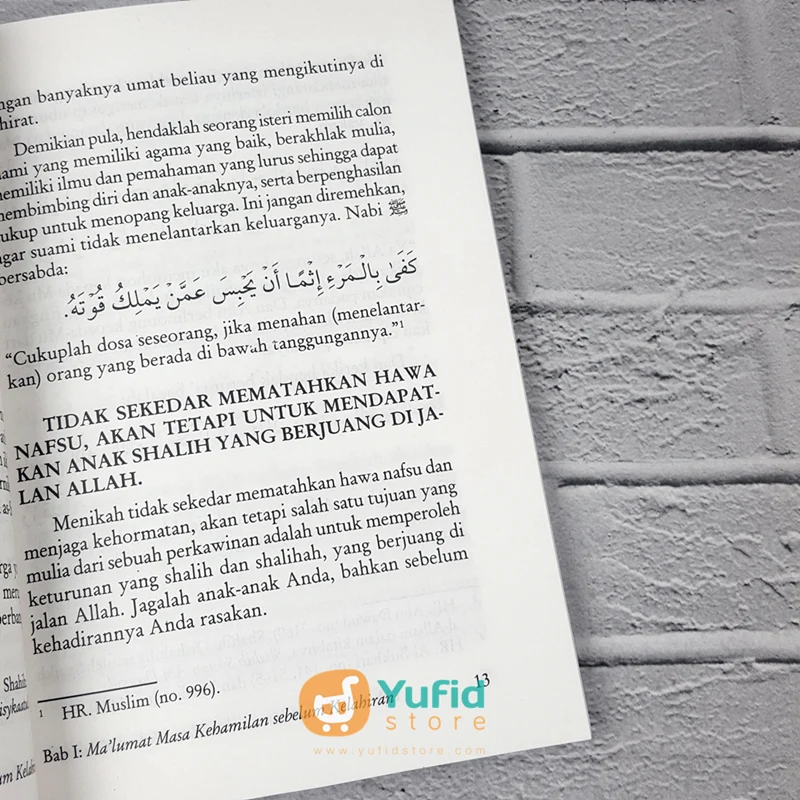 ngan banyaknya umat beliau yang mengikutinya di
hirat.
Demikian pula, hendaklah seorang isteri memilih calon
ami yang memiliki agama yang baik, berakhlak mulia,
emiliki ilmu dan pemahaman yang lurus sehingga dapat
embimbing diri dan anak-anaknya, serta berpenghasilan
ukup untuk menopang keluarga. Ini jangan diremehkan,
agar suami tidak menelantarkan keluarganya. Nabi ﷺ
bersabda:
كَفَىٰ بِالْمَرْءِ إِثْمًا أَنْ يَحْبِسَ عَمَّنْ يَمْلِكُ قُوْتَهُ.
“Cukuplah dosa seseorang, jika menahan (menelantar-
kan) orang yang berada di bawah tanggungannya.”¹
TIDAK SEKEDAR MEMATAHKAN HAWA
NAFSU, AKAN TETAPI UNTUK MENDAPAT-
KAN ANAK SHALIH YANG BERJUANG DI JA-
LAN ALLAH.
Menikah tidak sekedar mematahkan hawa nafsu dan
menjaga kehormatan, akan tetapi salah satu tujuan yang
mulia dari sebuah perkawinan adalah untuk memperoleh
keturunan yang shalih dan shalihah, yang berjuang di
jalan Allah. Jagalah anak-anak Anda, bahkan sebelum
kehadirannya Anda rasakan.
¹ HR. Muslim (no. 996).
Bab I: Ma'lumat Masa Kehamilan sebelum Kelahiran
13
Yufid
store
www.yufidstore.com